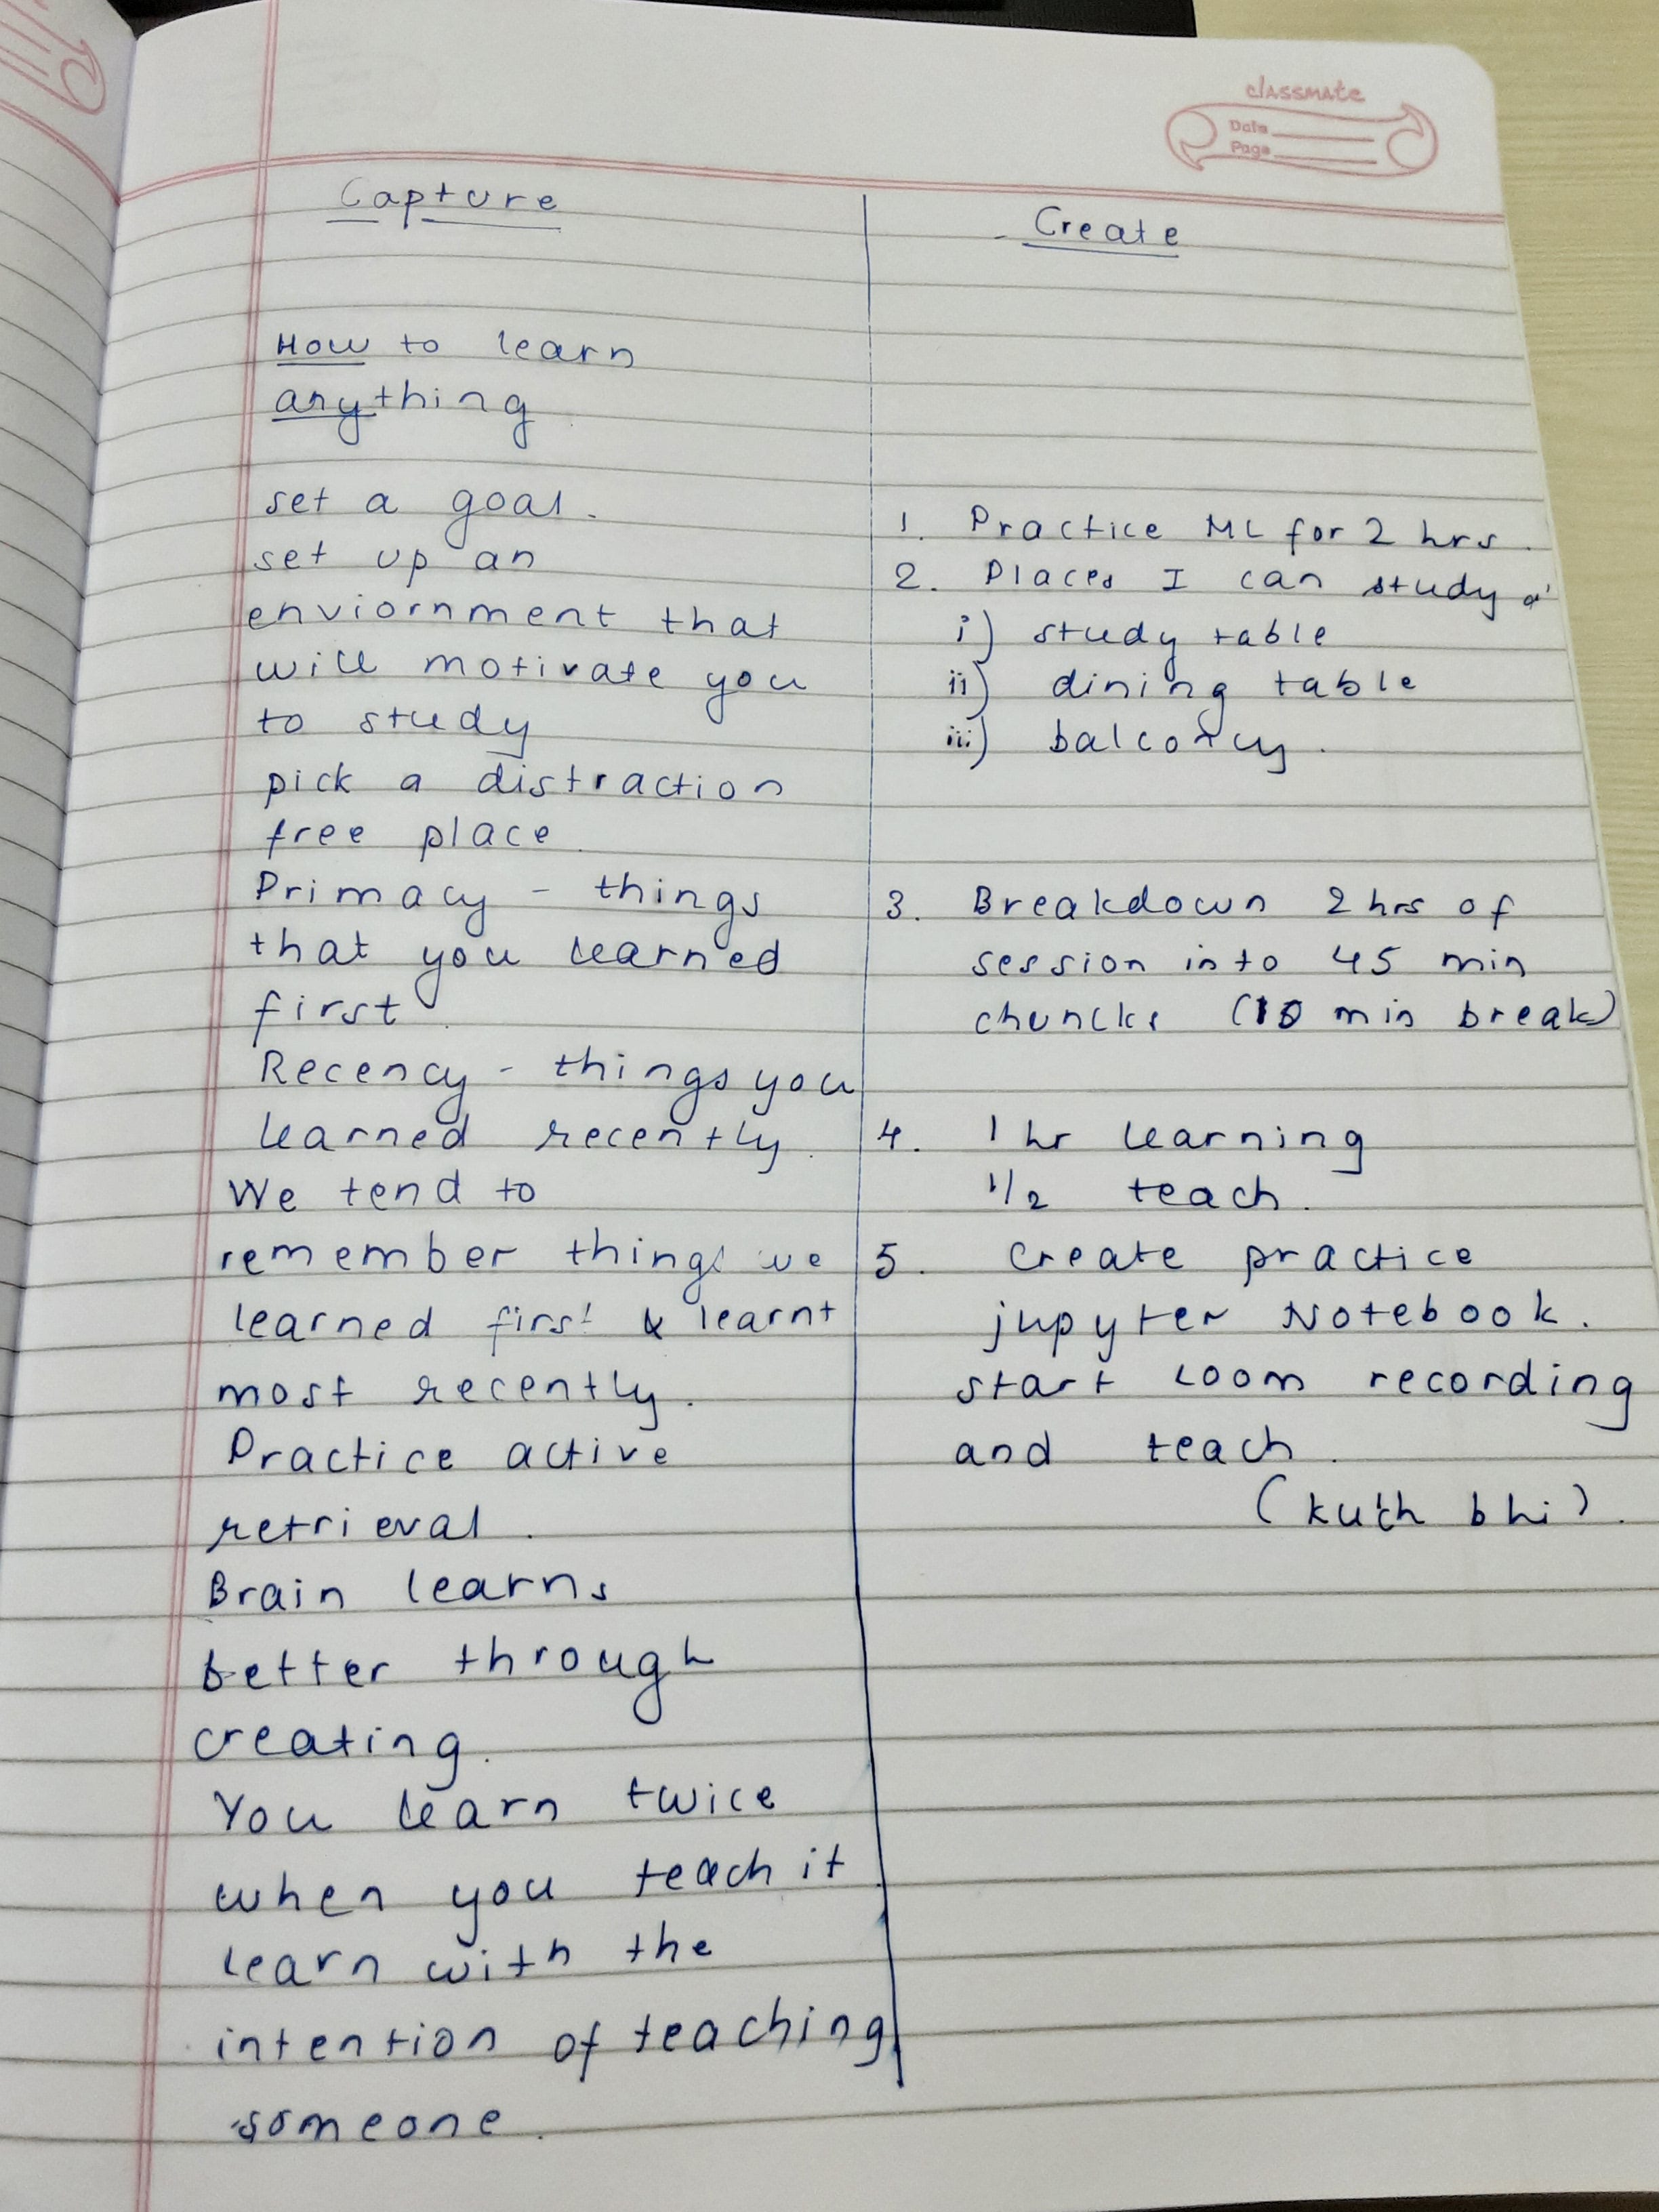 classmate
Date
Page
Capture
Create
How to learn
anything
set a goal.
set up an
enviornment that
will motivate you
to study
pick a distraction
free place.
Primacy - things
that you learned
first.
Recency - things you
learned recently.
We tend to
remember things we
learned first & learnt
most recently.
Practice active
retrieval.
Brain learns
better through
creating.
You learn twice
when you teach it.
learn with the
intention of teaching
someone.
1. Practice ML for 2 hrs.
2. Places I can study
i) study table
ii) dining table
iii) balcony.
3. Breakdown 2 hrs of
session into 45 min
chuncks (10 min break)
4. 1 hr learning
1/2 teach.
5. Create practice
jupyter Notebook.
start loom recording
and teach.
(kuch bhi).